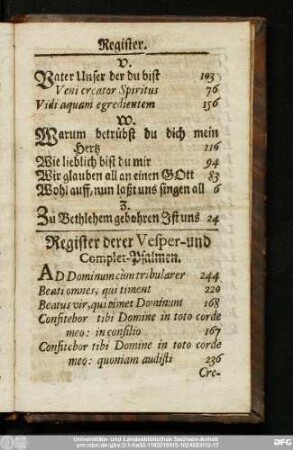 Register.
V.
Vater Unser der du bist 103
Veni creator Spiritus 76
Vidi aquam egredientem 156
W.
Warum betrübst du dich mein
Hertz 116
Wie lieblich bist du mir 94
Wir glauben all an einen GOtt 83
Wohl auff, nun laßt uns singen all 6
Z.
Zu Bethlehem gebohren Ist uns 24
Register derer Vesper-und
Complet-Psalmen.
AD Dominum cùm tribularer 244
Beati omnes, qui timent 220
Beatus vir, qui timet Dominum 168
Confitebor tibi Domine in toto corde
meo: in consilio 167
Confitebor tibi Domine in toto corde
meo: quoniam audisti 236
Cre-
Universitäts- und Landesbibliothek Sachsen-Anhalt
DFG